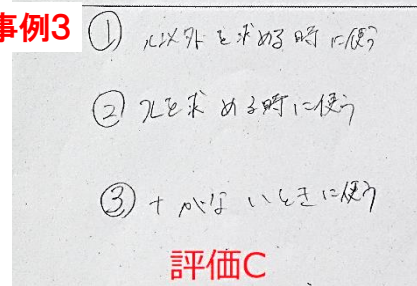 事例3
① x以外を求める時に使う
② xを求める時に使う
③ +がないときに使う
評価C